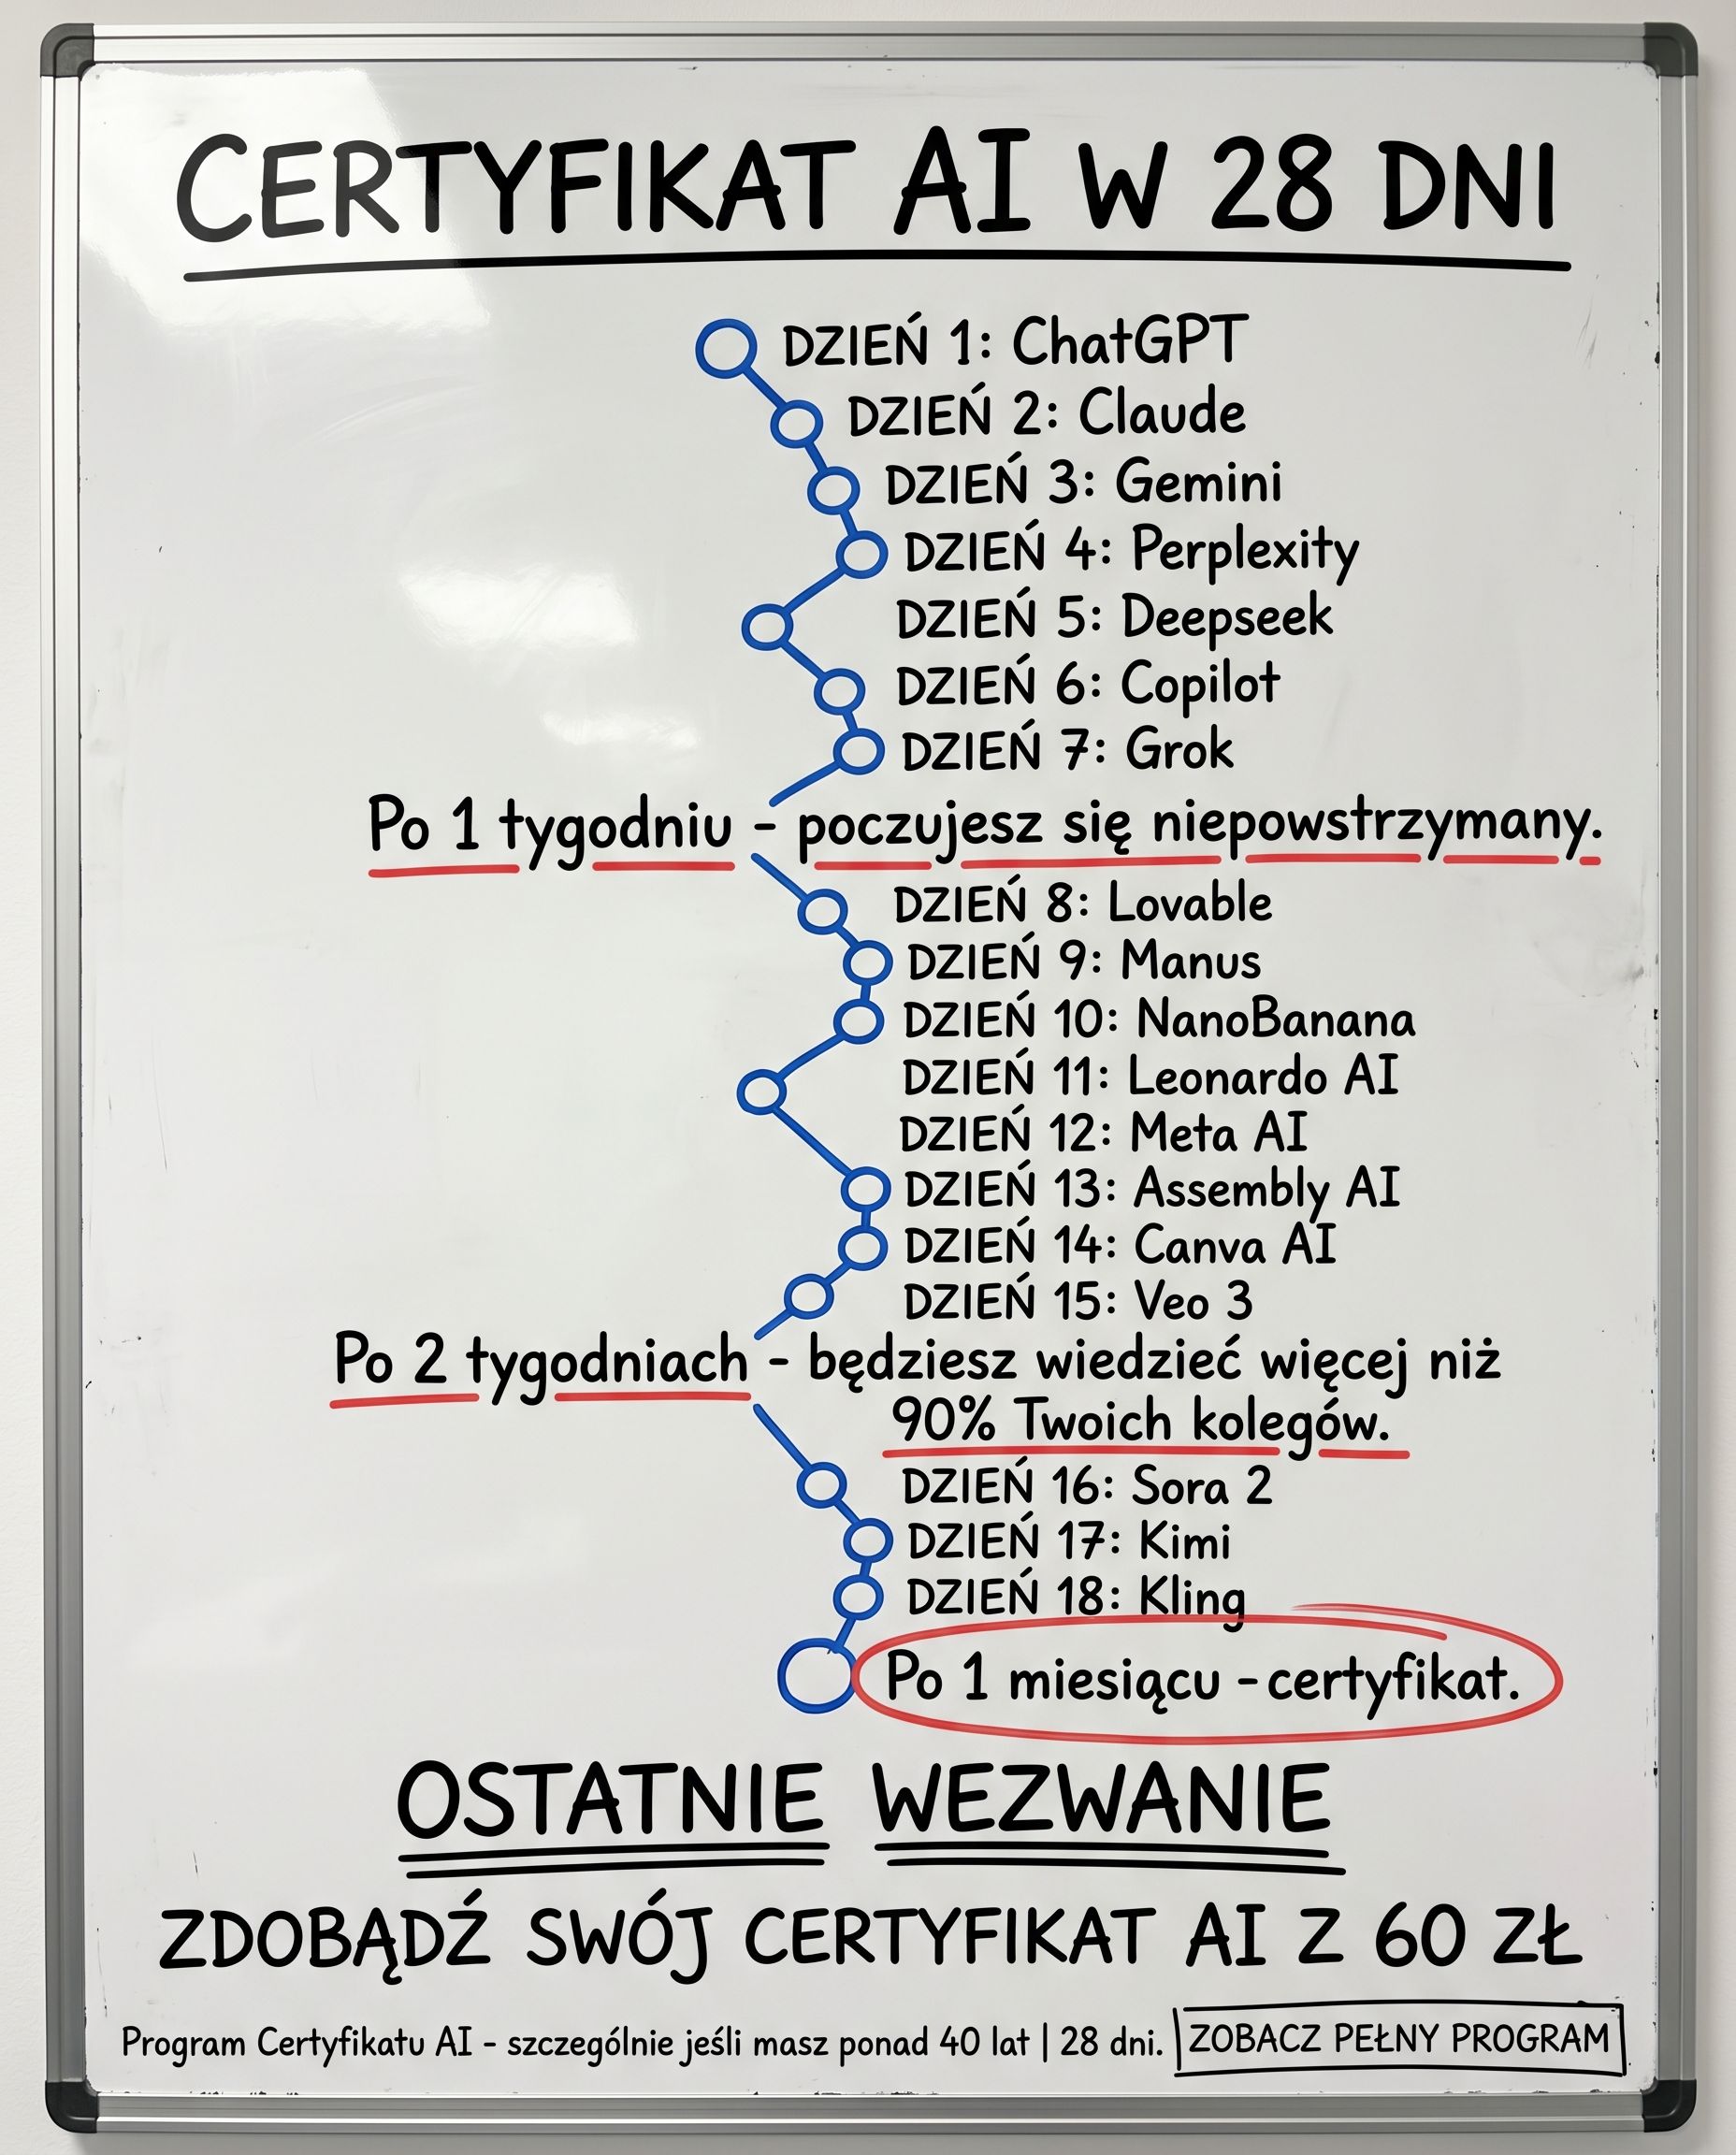 CERTYFIKAT AI W 28 DNI
DZIEŃ 1: ChatGPT
DZIEŃ 2: Claude
DZIEŃ 3: Gemini
DZIEŃ 4: Perplexity
DZIEŃ 5: Deepseek
DZIEŃ 6: Copilot
DZIEŃ 7: Grok
Po 1 tygodniu - poczujesz się niepowstrzymany.
DZIEŃ 8: Lovable
DZIEŃ 9: Manus
DZIEŃ 10: NanoBanana
DZIEŃ 11: Leonardo AI
DZIEŃ 12: Meta AI
DZIEŃ 13: Assembly AI
DZIEŃ 14: Canva AI
DZIEŃ 15: Veo 3
Po 2 tygodniach - będziesz wiedzieć więcej niż
90% Twoich kolegów.
DZIEŃ 16: Sora 2
DZIEŃ 17: Kimi
DZIEŃ 18: Kling
Po 1 miesiącu - certyfikat.
OSTATNIE WEZWANIE
ZDOBĄDŹ SWÓJ CERTYFIKAT AI Z 60 ZŁ
Program Certyfikatu AI - szczególnie jeśli masz ponad 40 lat | 28 dni. ZOBACZ PEŁNY PROGRAM